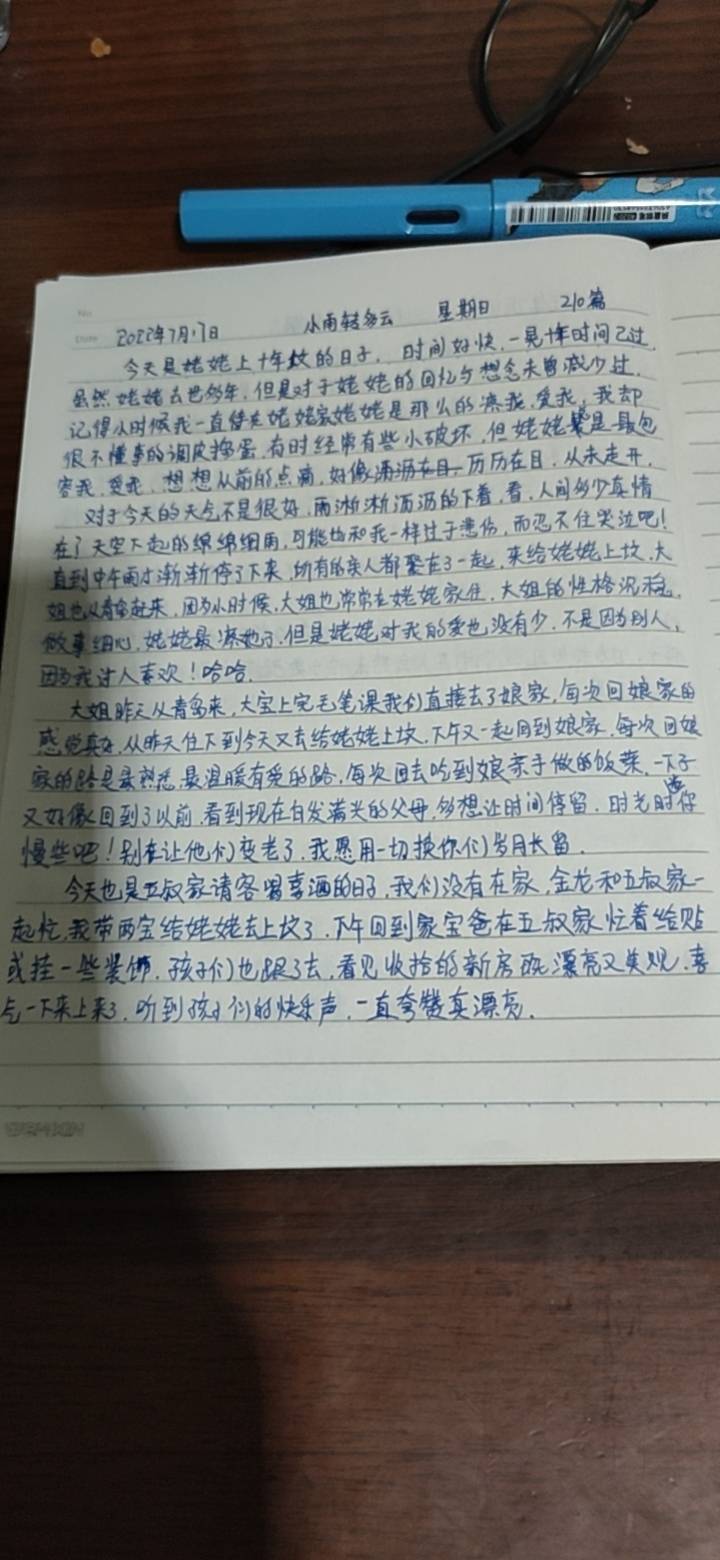 No.
Date 2022年7月17日 小雨转多云 星期日 210篇
今天是姥姥上十年坟的日子，时间好快，一晃十年时间已过，
虽然姥姥去世多年，但是对于姥姥的回忆与想念未曾减少过，
记得小时候我一直住在姥姥家姥姥是那么的疼我，爱我，我却
很不懂事的调皮捣蛋，有时经常有些小破坏，但姥姥是最包
容我，爱我，想想从前的点滴，好像历历在目，从未走开，
对于今天的天气不是很好，雨淅淅洒沥的下着，看，人间多少真情
在了天空下起的绵绵细雨，可能也和我一样过于悲伤，而忍不住哭泣吧！
直到中午雨才渐渐停了下来，所有的亲人都聚在了一起，来给姥姥上坟，大
姐也从青岛赶来，因为小时候，大姐也常常在姥姥家住，大姐的性格沉稳，
做事细心，姥姥最疼她了，但是姥姥对我的爱也没有少，不是因为别人，
因为我讨人喜欢！哈哈，
大姐昨天从青岛来，大宝上完毛笔课我们直接去了娘家，每次回娘家的
感觉真好，从昨天住下到今天又去给姥姥上坟，下午又一起回到娘家，每次回娘
家的路是最熟悉，最温暖有爱的路，每次回去吃到娘亲手做的饭菜，一下子
又好像回到了以前，看到现在白发满头的父母，多想让时间停留，时光时你
慢些吧！别在让他们变老了，我愿用一切换你们岁月长留，
今天也是五叔家请客喝喜酒的日子，我们没有在家，金龙和五叔家一
起忙，我带两宝给姥姥去上坟了，下午回到家宝爸在五叔家忙着给贴
或挂一些装饰，孩子们也跟了去，看见收拾的新房既漂亮又美观，喜
气一下来上来了，听到孩子们的快乐声，一直夸赞真漂亮，